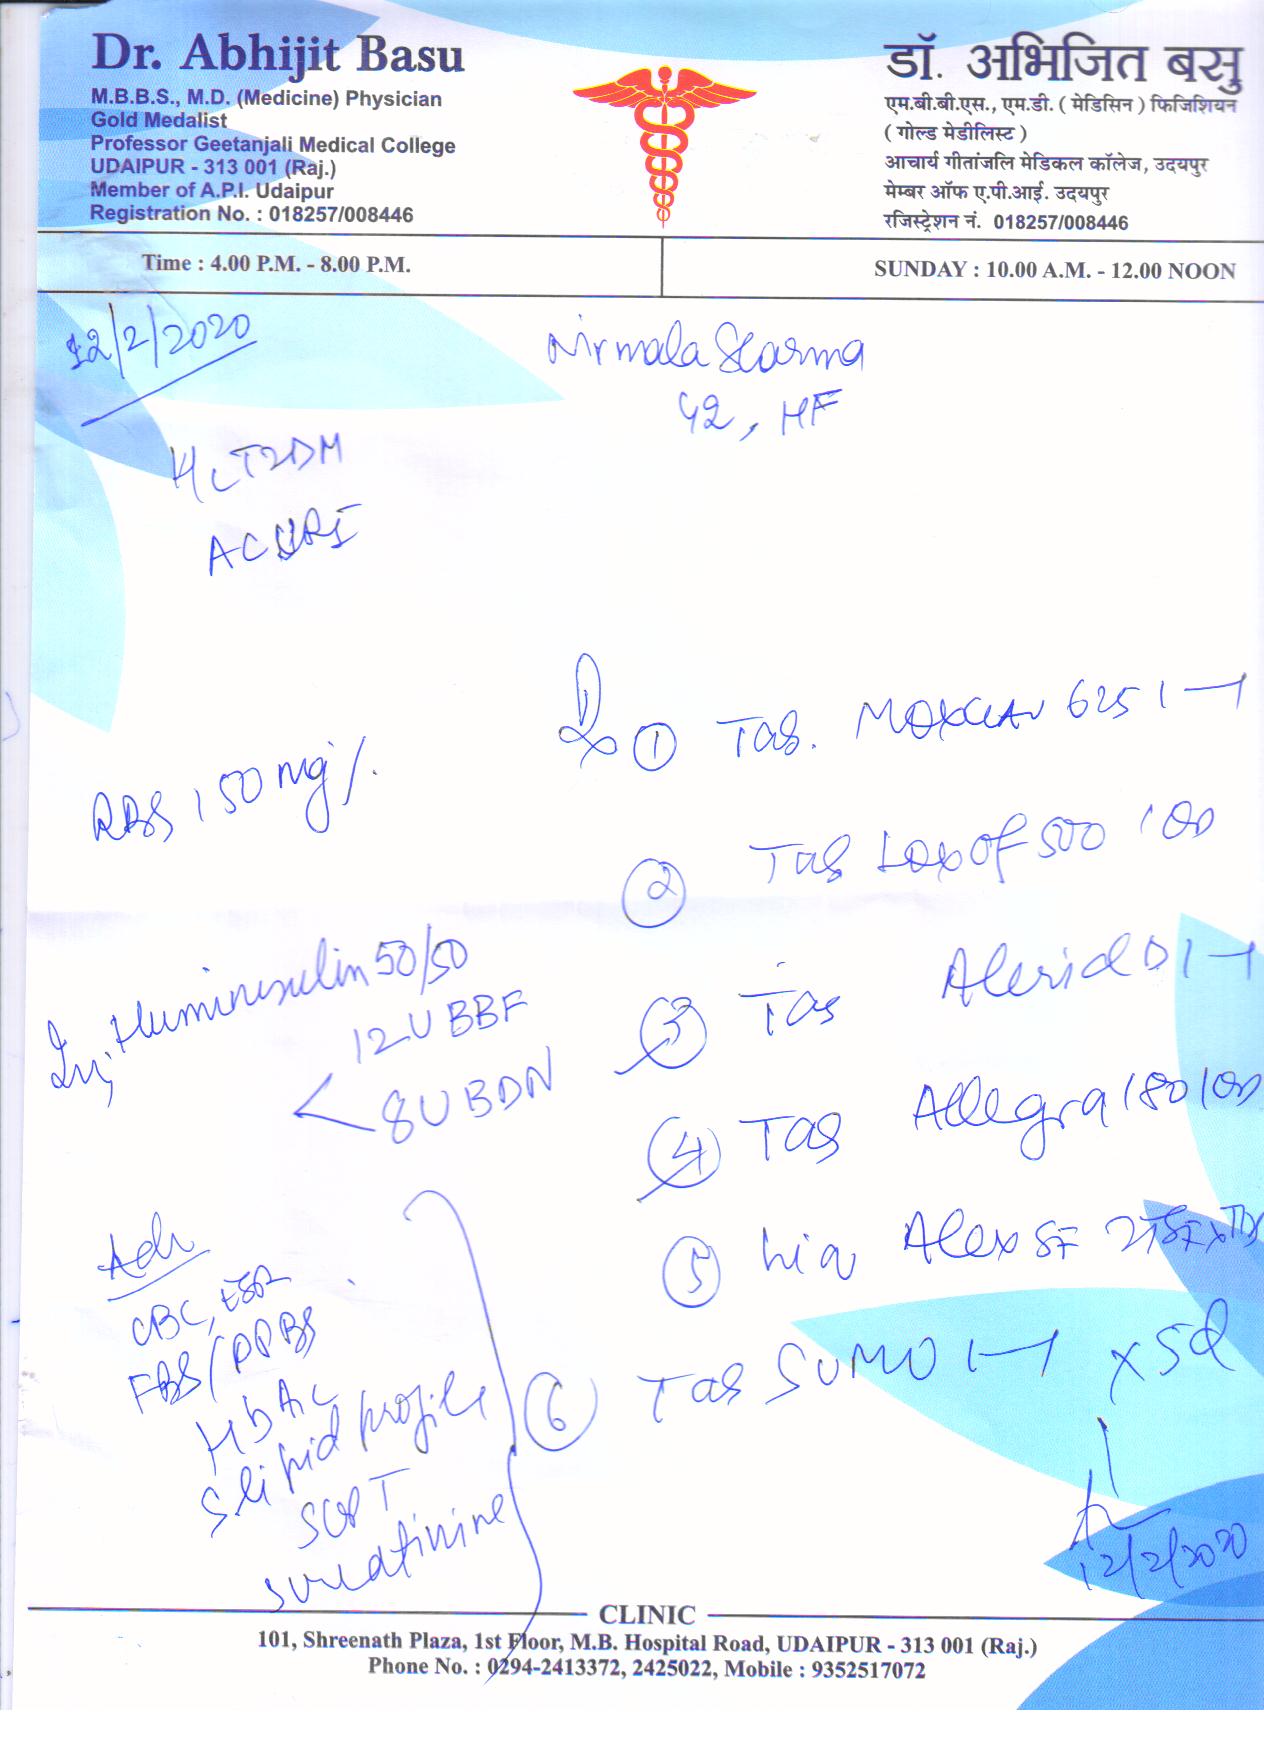 Dr. Abhijit Basu
M.B.B.S., M.D. (Medicine) Physician
Gold Medalist
Professor Geetanjali Medical College
UDAIPUR - 313 001 (Raj.)
Member of A.P.I. Udaipur
Registration No. : 018257/008446
डॉ. अभिजित बसु
एम.बी.बी.एस., एम.डी. ( मेडिसिन ) फिजिशियन
( गोल्ड मेडीलिस्ट )
आचार्य गीतांजलि मेडिकल कॉलेज, उदयपुर
मेम्बर ऑफ ए.पी.आई. उदयपुर
रजिस्ट्रेशन नं. 018257/008446
Time : 4.00 P.M. - 8.00 P.M.
SUNDAY : 10.00 A.M. - 12.00 NOON
12/2/2020
Nirmala Sharma
42, HF
T2DM
AC URI
RBS 150 mg/.
Inj Huminsulin 50/50
12U BBF
8U BDN
Adv
CBC, ESR
FBS/PPBS
HbA1c
S lipid profile
SGPT
Screatinine
Rx
1 Tab. MOXCLAV 625 1-1
2 Tab Loxof 500 1 OD
3 Tab Alerid D 1-1
4 Tab Allegra 180 1 OD
5 Liq Alex SF 2TSF x TDS
6 Tab SUMO 1-1 x 5d
12/2/2020
CLINIC
101, Shreenath Plaza, 1st Floor, M.B. Hospital Road, UDAIPUR - 313 001 (Raj.)
Phone No. : 0294-2413372, 2425022, Mobile : 9352517072